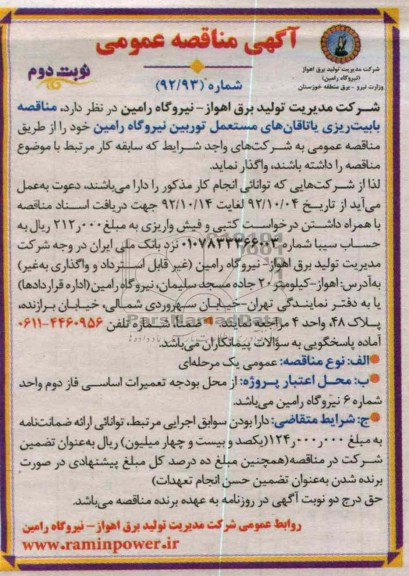 آگهی مناقصه عمومی
شرکت مدیریت تولید برق اهواز
(نیروگاه رامین)
وزارت نیرو - برق منطقه خوزستان
نوبت دوم
شماره (۹۲/۹۳)
شرکت مدیریت تولید برق اهواز- نیروگاه رامین در نظر دارد، مناقصه
بابیت‌ریزی یاتاقان‌های مستعمل توربین نیروگاه رامین خود را از طریق
مناقصه عمومی به شرکت‌های واجد شرایط که سابقه کار مرتبط با موضوع
مناقصه را داشته باشند، واگذار نماید.
لذا از شرکت‌هایی که توانائی انجام کار مذکور را دارا می‌باشند، دعوت به‌عمل
می‌آید از تاریخ ۹۲/۱۰/۰۴ لغایت ۹۲/۱۰/۱۴ جهت دریافت اسناد مناقصه
با همراه داشتن درخواست کتبی و فیش واریزی به مبلغ ۲۱۲ر۰۰۰ ریال به
حساب سیبا شماره ۰۱۰۷۸۳۳۳۶۶۰۰۳ نزد بانک ملی ایران در وجه شرکت
مدیریت تولید برق اهواز- نیروگاه رامین (غیر قابل استرداد و واگذاری به‌غیر)
به‌آدرس: اهواز-کیلومتر۲۰ جاده مسجد سلیمان، نیروگاه رامین (اداره قراردادها)
یا به دفتر نمایندگی تهران-خیابان سهروردی شمالی، خیابان برازنده،
پلاک ۴۸، واحد ۴ مراجعه نمایند. ضمناً، شماره تلفن ۴۴۶۰۹۵۶-۰۶۱۱
آماده پاسخگویی به سؤالات پیمانکاران می‌باشد.
الف: نوع مناقصه: عمومی یک مرحله‌ای
ب: محل اعتبار پروژه: از محل بودجه تعمیرات اساسی فاز دوم واحد
شماره ۶ نیروگاه رامین می‌باشد.
ج: شرایط متقاضی: دارا بودن سوابق اجرایی مرتبط، توانائی ارائه ضمانت‌نامه
به مبلغ ۱۲۴ر۰۰۰ر۰۰۰ (یکصد و بیست و چهار میلیون) ریال به‌عنوان تضمین
شرکت در مناقصه(همچنین مبلغ ده درصد کل مبلغ پیشنهادی در صورت
برنده شدن به‌عنوان تضمین حسن انجام تعهدات)
حق درج دو نوبت آگهی در روزنامه به عهده برنده مناقصه می‌باشد.
روابط عمومی شرکت مدیریت تولید برق اهواز- نیروگاه رامین
www.raminpower.ir